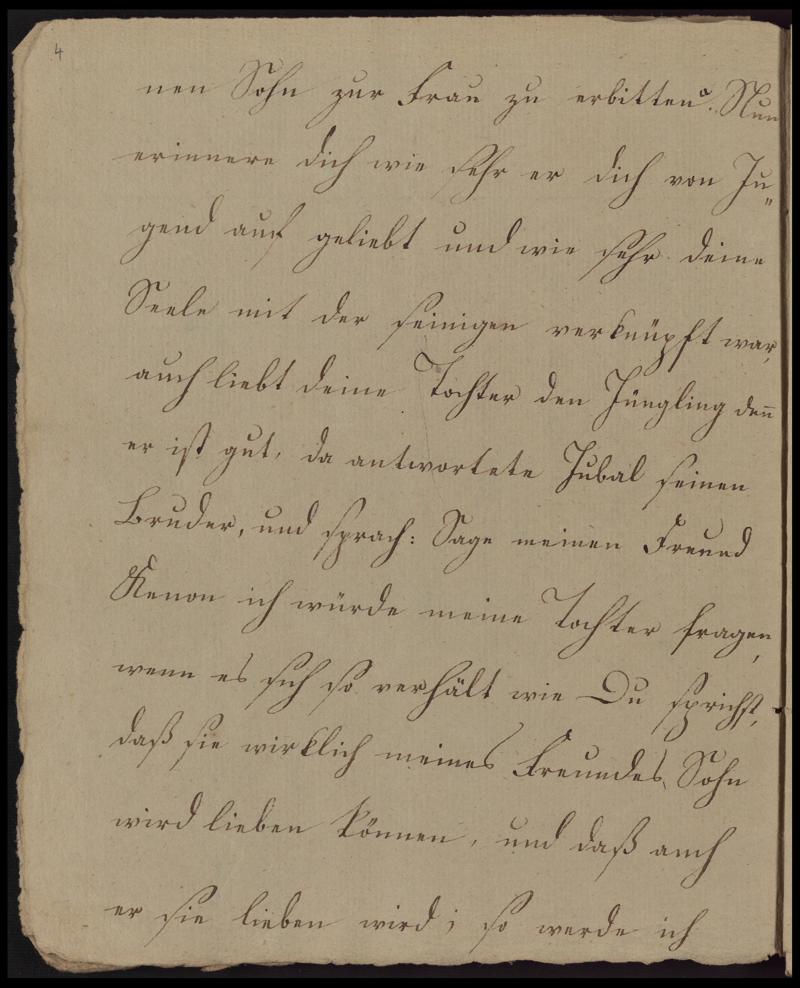 4
nen Sohn zur Frau zu erbitten. Nun
erinnere dich wie sehr er dich von Ju„
gend auf geliebt und wie sehr deine
Seele mit der seinigen verknüpft war,
auch liebt deine Tochter den Jüngling den̄
er ist gut, da antwortete Jubal seinen
Bruder, und sprach: Sage meinen Freund
Kenon ich würde meine Tochter fragen,
wenn es sich so verhält wie Du sprichst,
daß sie wirklich meines Freundes Sohn
wird lieben können, und daß auch
er sie lieben wird; so werde ich